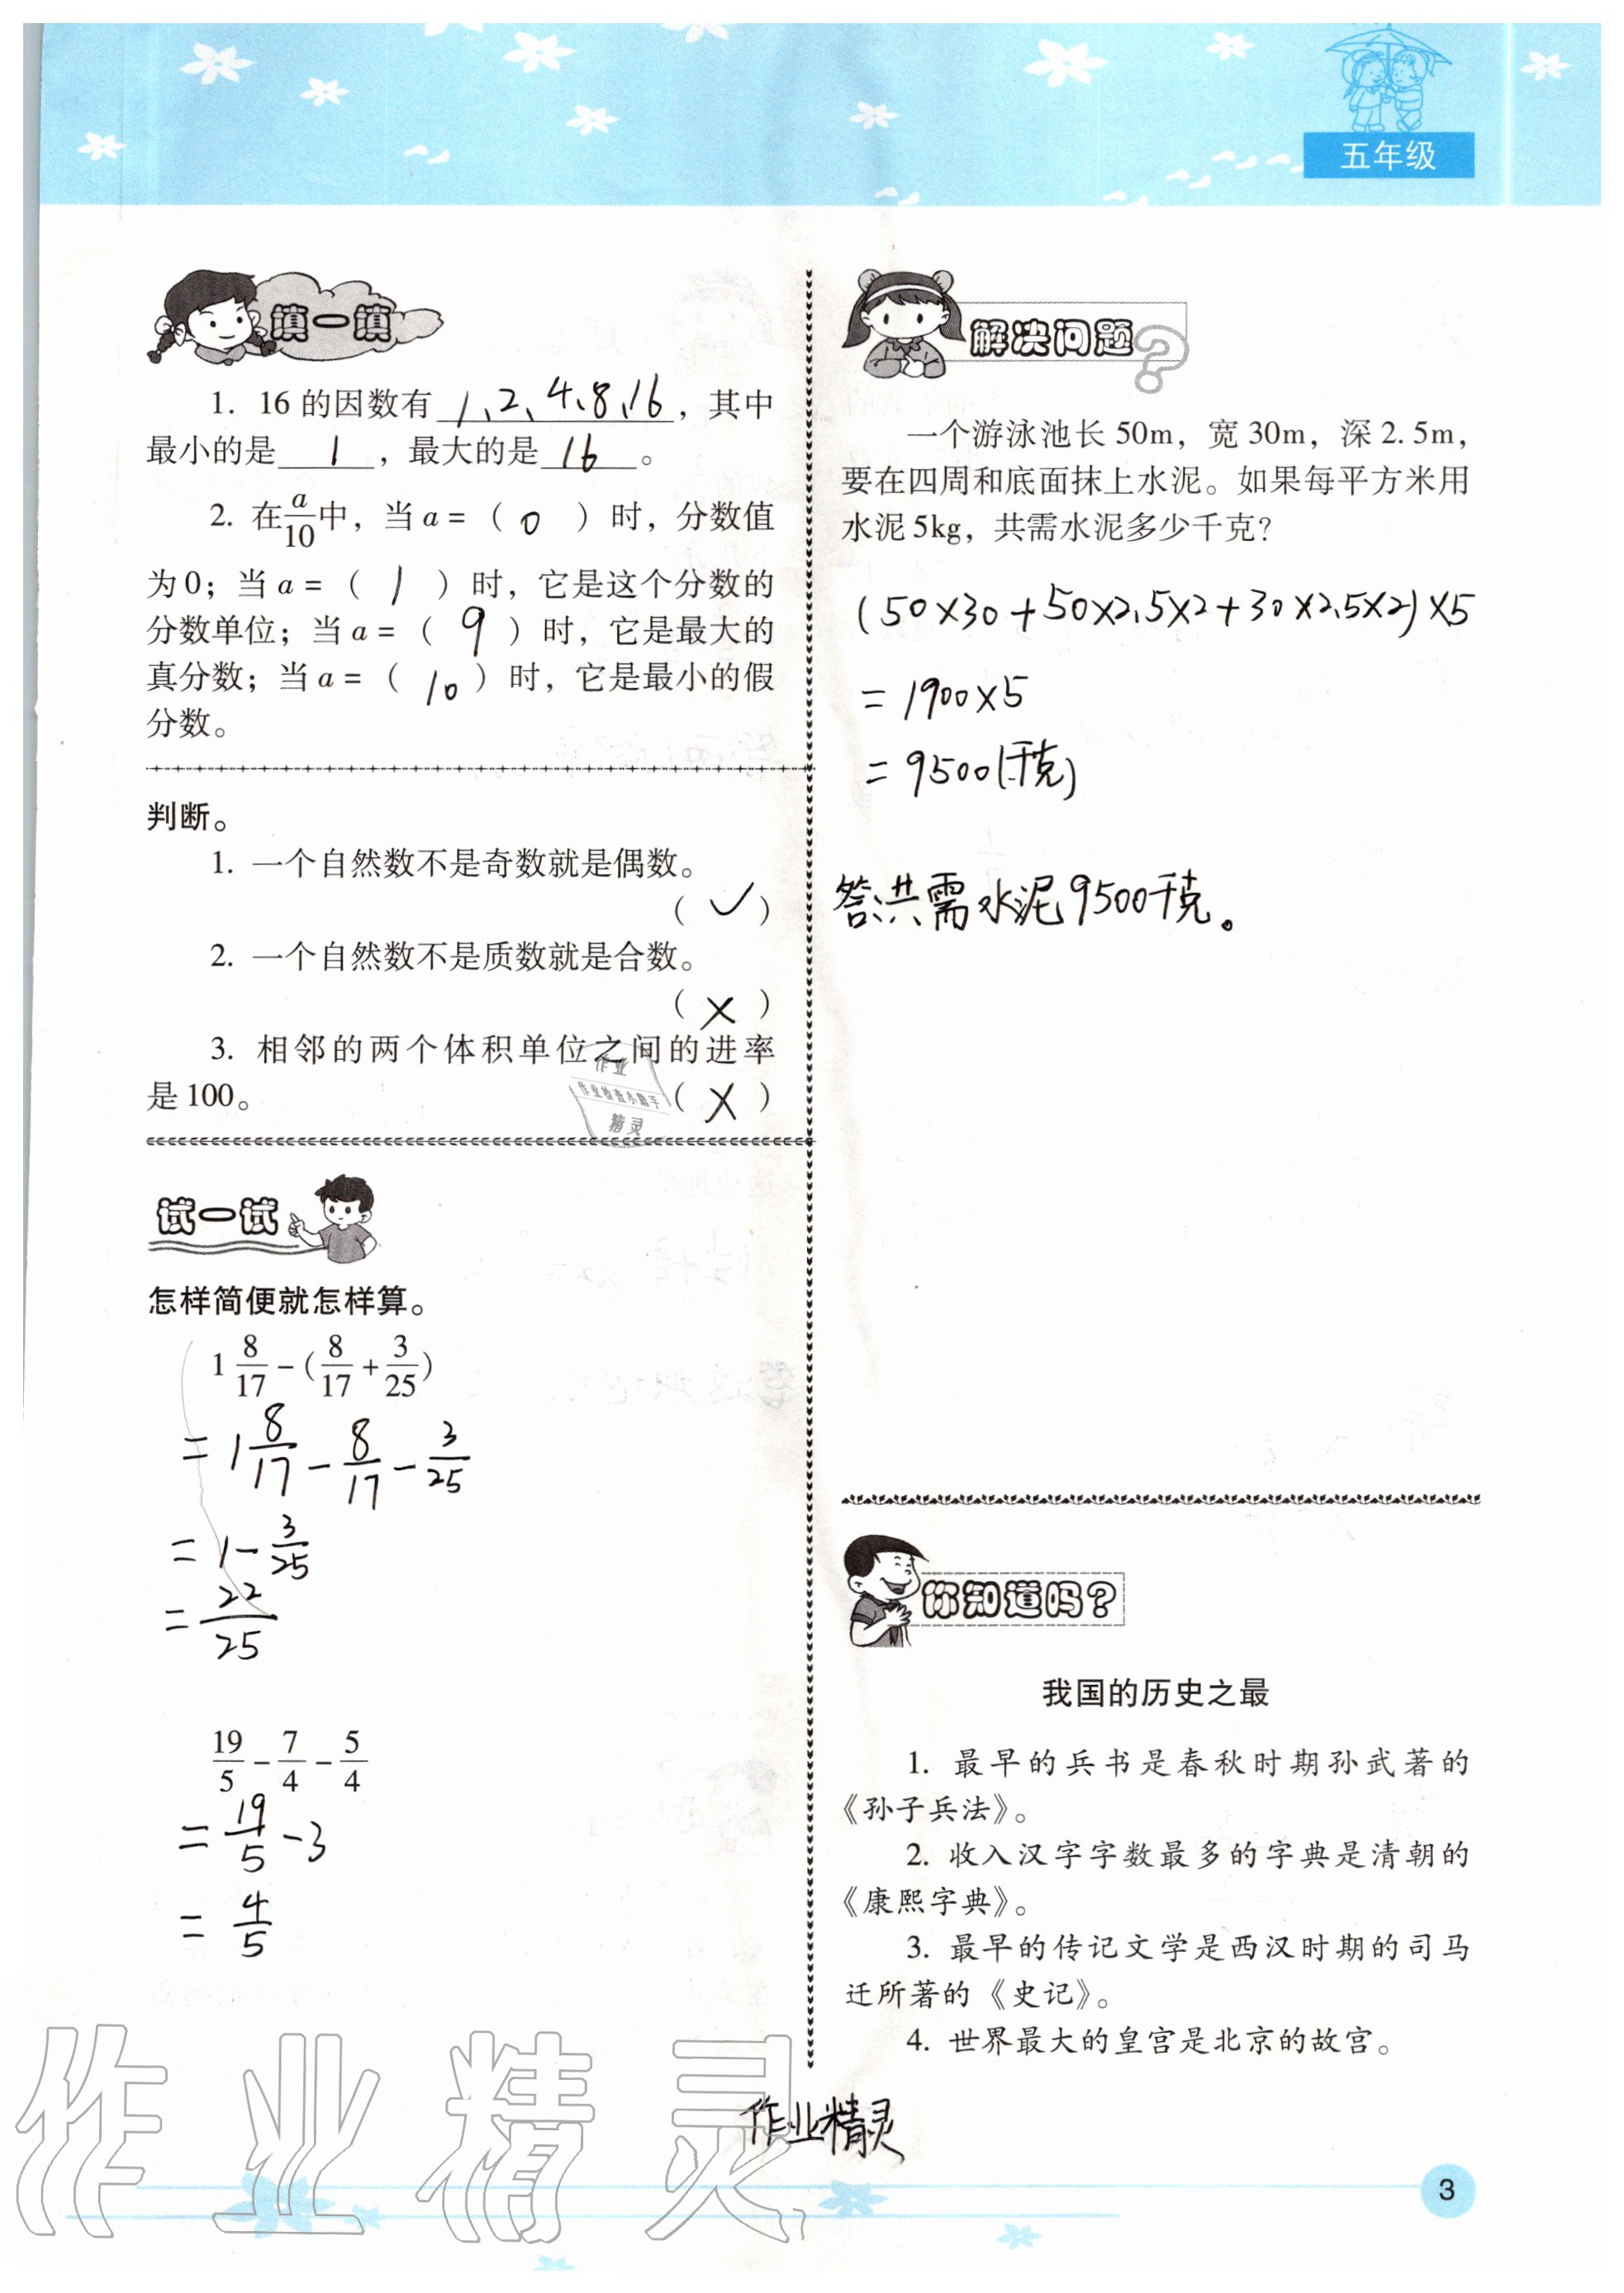 五年级
填一填
1. 16 的因数有 1、2、4、8、16 ，其中
最小的是 1 ，最大的是 16 。
2. 在a/10中，当 a =（ 0 ）时，分数值
为 0；当 a =（ 1 ）时，它是这个分数的
分数单位；当 a =（ 9 ）时，它是最大的
真分数；当 a =（ 10 ）时，它是最小的假
分数。
判断。
1. 一个自然数不是奇数就是偶数。
（ ✓ ）
2. 一个自然数不是质数就是合数。
（ × ）
3. 相邻的两个体积单位之间的进率
是 100。（ × ）
作业
作业检查小助手
精灵
试一试
怎样简便就怎样算。
1 8/17 - (8/17 + 3/25)
= 1 8/17 - 8/17 - 3/25
= 1 - 3/25
= 22/25
19/5 - 7/4 - 5/4
= 19/5 - 3
= 4/5
解决问题?
一个游泳池长 50m，宽 30m，深 2.5m，
要在四周和底面抹上水泥。如果每平方米用
水泥 5kg，共需水泥多少千克？
(50×30+50×2.5×2+30×2.5×2)×5
= 1900×5
= 9500(千克)
答:共需水泥9500千克。
你知道吗？
我国的历史之最
1. 最早的兵书是春秋时期孙武著的
《孙子兵法》。
2. 收入汉字字数最多的字典是清朝的
《康熙字典》。
3. 最早的传记文学是西汉时期的司马
迁所著的《史记》。
4. 世界最大的皇宫是北京的故宫。
作业精灵
作业精灵
3